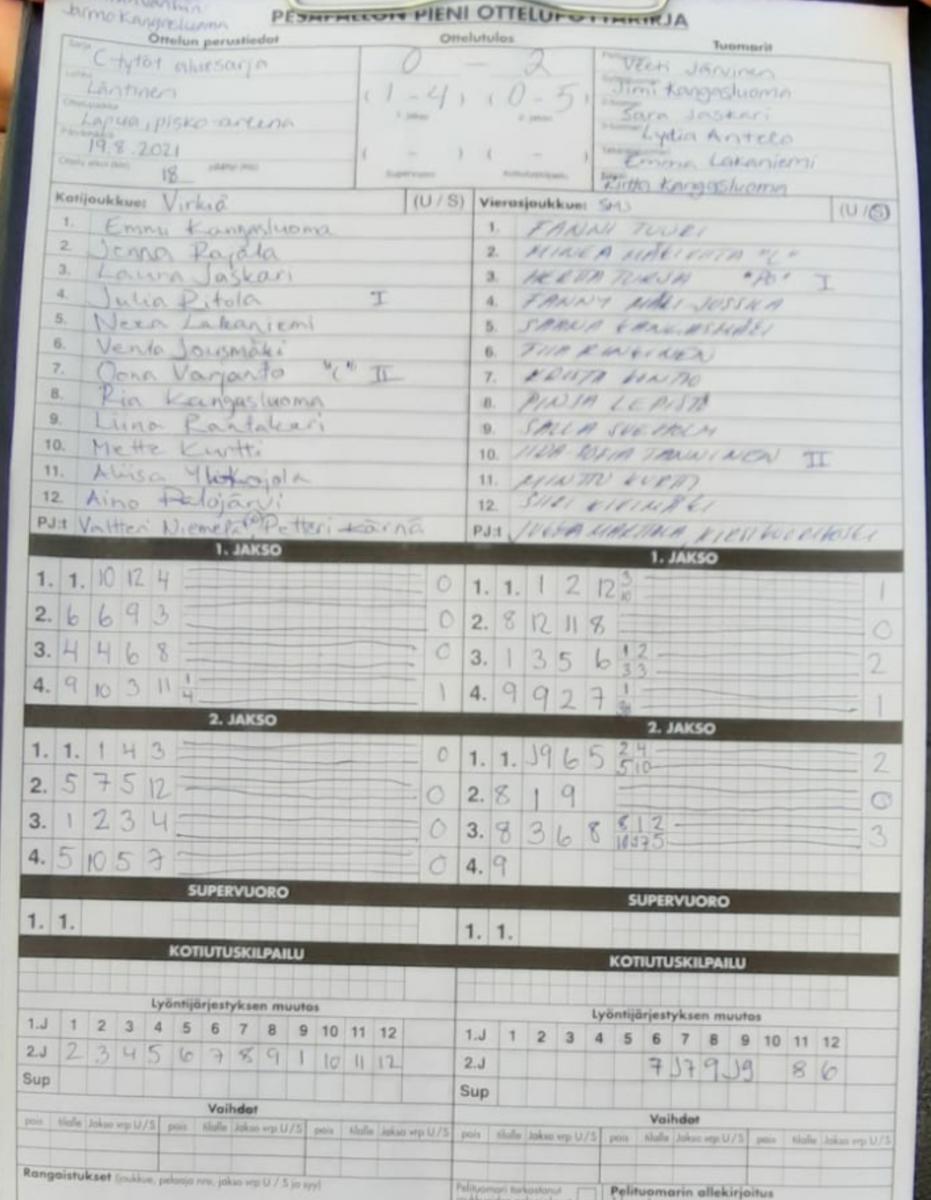 Jarmo Kangasluoma
PESÄPALLON PIENI OTTELUPÖYTÄKIRJA
Ottelun perustiedot
Ottelutulos
Tuomarit
C-tytöt aluesarja
Läntinen
Lapua, pisko-areena
19.8.2021
18
0 - 2
(1 - 4) (0 - 5)
( - ) ( - )
Supervuoro
Veeti Järvinen
Jimi Kangasluoma
Sara Jaskari
Lydia Antelo
Emma Lakaniemi
Riitta Kangasluoma
Kotijoukkue: Virkiä (U / S)
1. Emmi Kangasluoma
2. Jenna Rajala
3. Laura Jaskari
4. Julia Ritola I
5. Neea Lakaniemi
6. Venla Jousmäki
7. Oona Varjanto "C" II
8. Ria Kangasluoma
9. Liina Rantakari
10. Mette Kurtti
11. Aliisa Ylikojola
12. Aino Palojärvi
PJ:t Valtteri Niemelä, Petteri Kärnä
Vierasjoukkue: SMJ (U / S)
1. FANNI TUURI
2. MINEA "C"
3. HERTTA TURJA "PO" I
4. FANNY MÄKI-JUSSILA
5. KANGASMÄKI
6. TIIA RINKINEN
7. KRISTA
8. PINJA LEPISTÖ
9. SALLA
10. IIDA-SOFIA TANNINEN II
11. MINTTU
12. SIIRI KIVIMÄKI
PJ:t
1. JAKSO
1. 1. 10 12 4 0
2. 6 6 9 3 0
3. 4 4 6 8 0
4. 9 10 3 11 1 4 1
2. JAKSO
1. 1. 1 4 3 0
2. 5 7 5 12 0
3. 1 2 3 4 0
4. 5 10 5 7 0
SUPERVUORO
1. 1.
KOTIUTUSKILPAILU
Lyöntijärjestyksen muutos
1.J 1 2 3 4 5 6 7 8 9 10 11 12
2.J 2 3 4 5 6 7 8 9 1 10 11 12
Sup
Vaihdot
pois tilalle Jakso vrp U / S pois tilalle Jakso vrp U / S pois tilalle Jakso vrp U / S
Rangaistukset (joukkue, pelaaja nro, jakso vrp U / S ja syy)
1. JAKSO
1. 1. 1 2 12 3 10 1
2. 8 12 11 8 0
3. 1 3 5 6 1 2 3 3 2
4. 9 9 2 7 1 1
2. JAKSO
1. 1. J9 6 5 2 4 5 10 2
2. 8 1 9 0
3. 8 3 6 8 8 1 2 3
4. 9
SUPERVUORO
1. 1.
KOTIUTUSKILPAILU
Lyöntijärjestyksen muutos
1.J 1 2 3 4 5 6 7 8 9 10 11 12
2.J 7 J7 9 J9 8 6
Sup
Vaihdot
pois tilalle Jakso vrp U / S pois tilalle Jakso vrp U / S pois tilalle Jakso vrp U / S
Pelituomari tarkastanut
Pelituomarin allekirjoitus